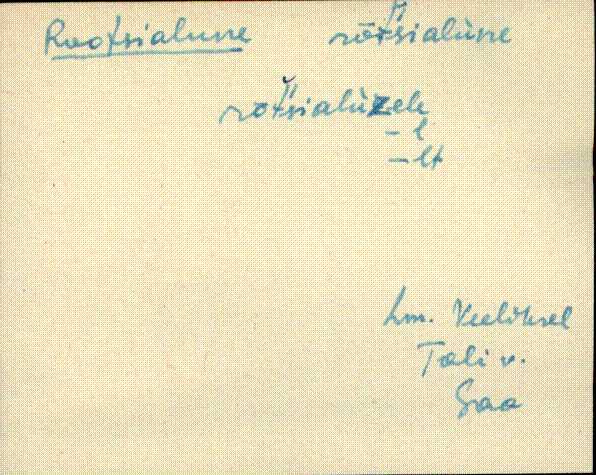 Rootsialune rōtsialùne
rotsialùzele
- l
- lt
hm. Veelikse
Tali v.
Saa